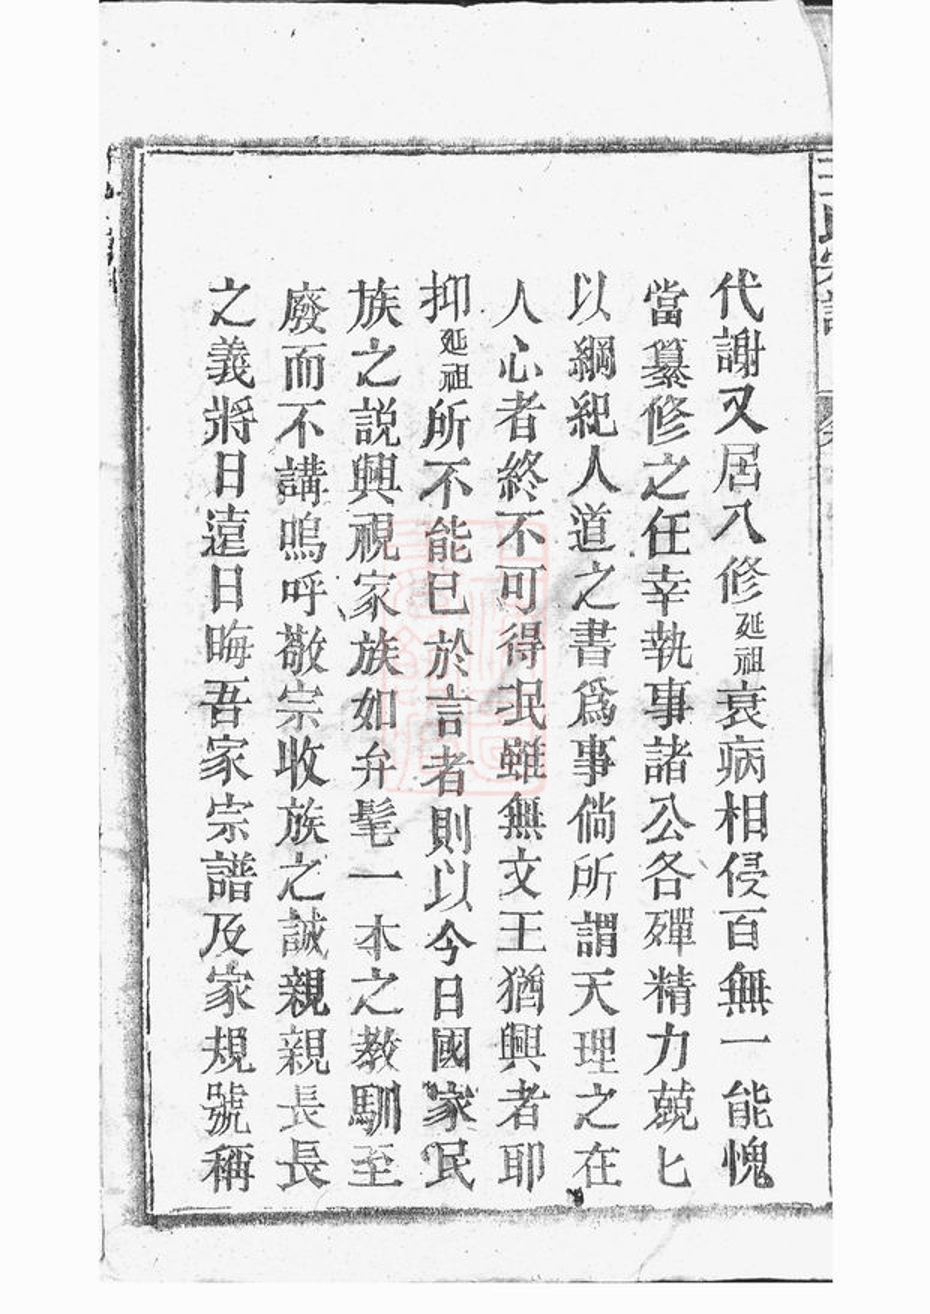 王氏宗譜
代謝又居八修延祖衰病相侵百無一能愧
當纂修之任幸執事諸公各殫精力兢匕
以綱紀人道之書爲事倘所謂天理之在
人心者終不可得泯雖無文王猶興者耶
抑延祖所不能已於言者則以今日國家民
族之説興視家族如弁髦一本之教馴至
廢而不講嗚呼敬宗收族之誠親親長長
之義將日遠日晦吾家宗譜及家規號稱